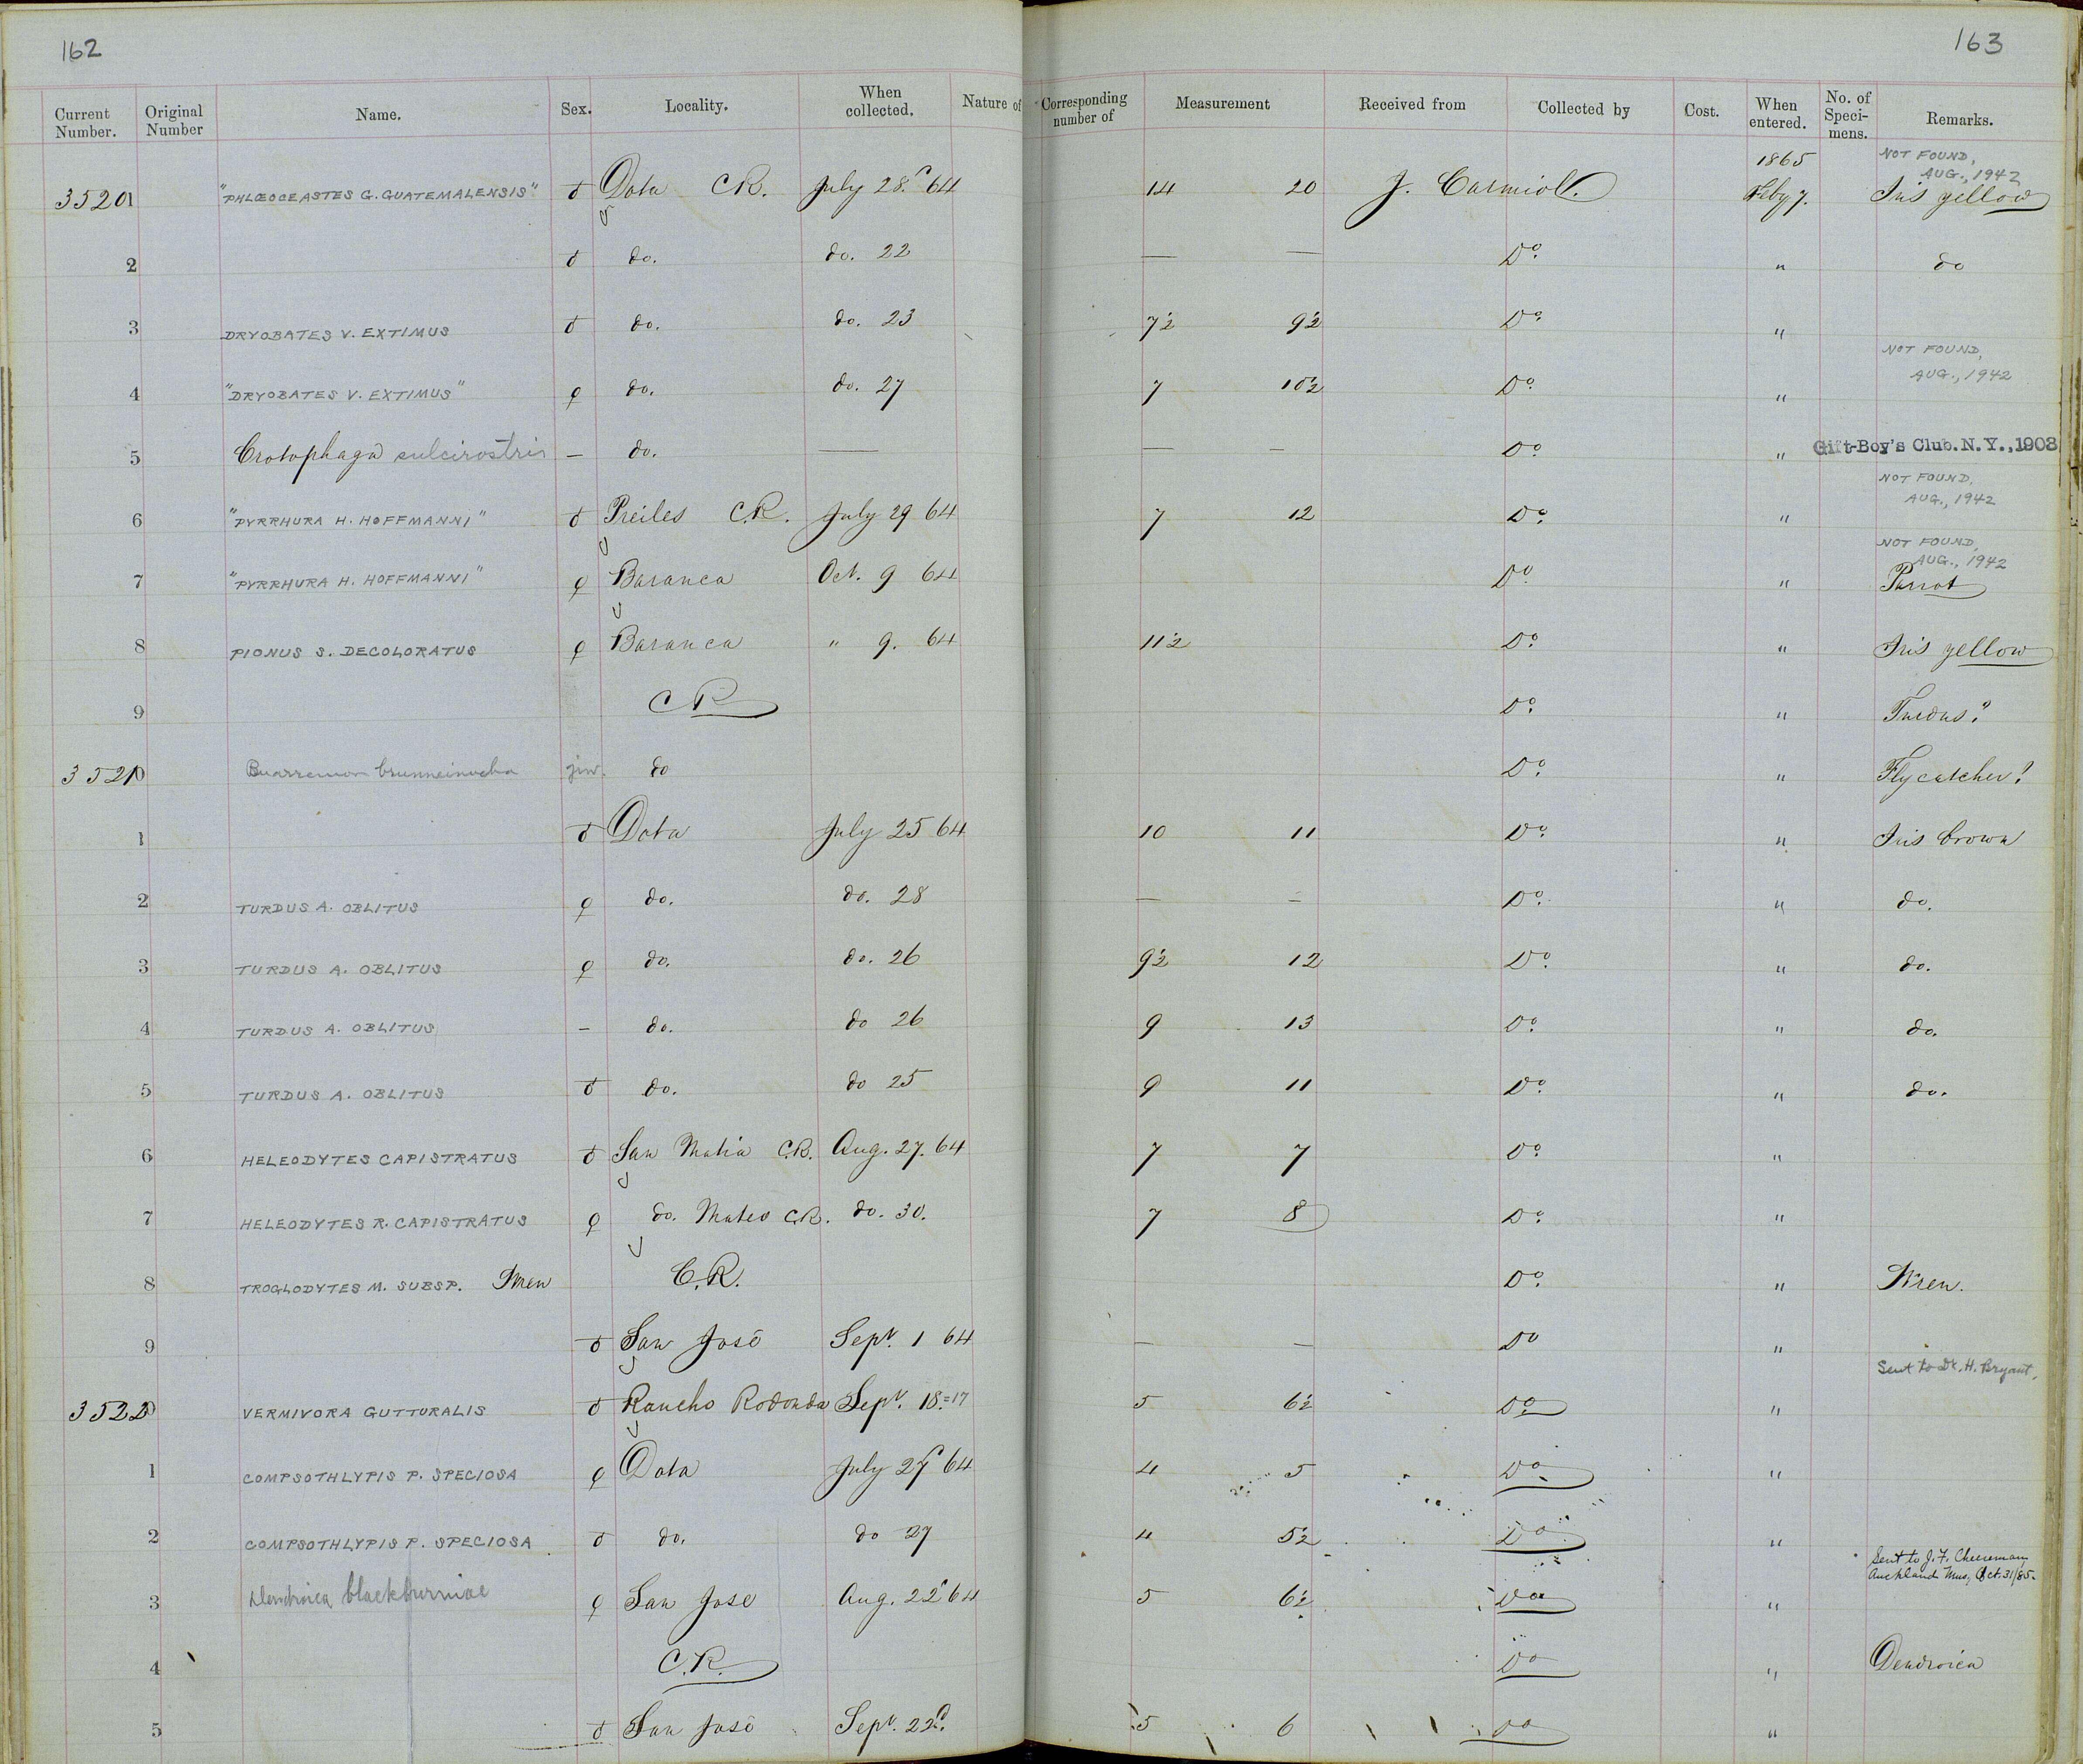 162
163
Current Number. Original Number Name. Sex. Locality. When collected. Nature of Corresponding number of Measurement Received from Collected by Cost. When entered. No. of Speci-mens. Remarks.
1865 NOT FOUND, AUG., 1942
35201 "PHLŒOCEASTES G. GUATEMALENSIS" ♂ Dota C.R. July 28. 64 14 20 J. Carmiol. Feby 7. Iris yellow
2 ♂ do. do. 22 — — Do. " do
3 DRYOBATES V. EXTIMUS ♂ do. do. 23 7½ 9½ Do. "
NOT FOUND, AUG., 1942
4 "DRYOBATES V. EXTIMUS" ♀ do. do. 27 7 10½ Do. "
5 Crotophaga sulcirostris — do. — — — Do. " Gift-Boy's Club. N. Y., 1903
NOT FOUND, AUG., 1942
6 "PYRRHURA H. HOFFMANNI" ♂ Preiles C.R. July 29 64 7 12 Do. "
NOT FOUND, AUG., 1942
7 "PYRRHURA H. HOFFMANNI" ♀ Baranca Oct. 9 64 Do. " Parrot
8 PIONUS S. DECOLORATUS ♀ Baranca " 9. 64 11½ Do. " Iris yellow
9 C R Do. " Turdus?
35210 Buarremon brunneinucha juv. do Do. " Flycatcher!
1 ♂ Dota July 25 64 10 11 Do. " Iris brown
2 TURDUS A. OBLITUS ♀ do. do. 28 — — Do. " do.
3 TURDUS A. OBLITUS ♀ do. do. 26 9½ 12 Do. " do.
4 TURDUS A. OBLITUS — do. do 26 9 13 Do. " do.
5 TURDUS A. OBLITUS ♂ do. do 25 9 11 Do. " do.
6 HELEODYTES CAPISTRATUS ♂ San Matia C.R. Aug. 27. 64 7 7 Do. "
7 HELEODYTES R. CAPISTRATUS ♀ do. Mateo C.R. do. 30. 7 8 Do. "
8 TROGLODYTES M. SUBSP. Wren C.R. Do. " Wren.
9 ♂ San José Sept. 1 64 — — Do "
Sent to Dr. H. Bryant,
35220 VERMIVORA GUTTURALIS ♂ Rancho Rodonda Sept. 18.=17 5 6½ Do "
1 COMPSOTHLYPIS P. SPECIOSA ♀ Dota July 27 64 4 5 Do "
2 COMPSOTHLYPIS P. SPECIOSA ♂ do. do 27 4 5½ Do "
Sent to J. F. Cheeseman
Auckland Mus., Oct. 31/85.
3 Dendroica blackburniae ♀ San Jose Aug. 22 64 5 6½ Do "
4 C.R. Do " Dendroica
5 ♂ San José Sept. 22d. 5 6 Do "